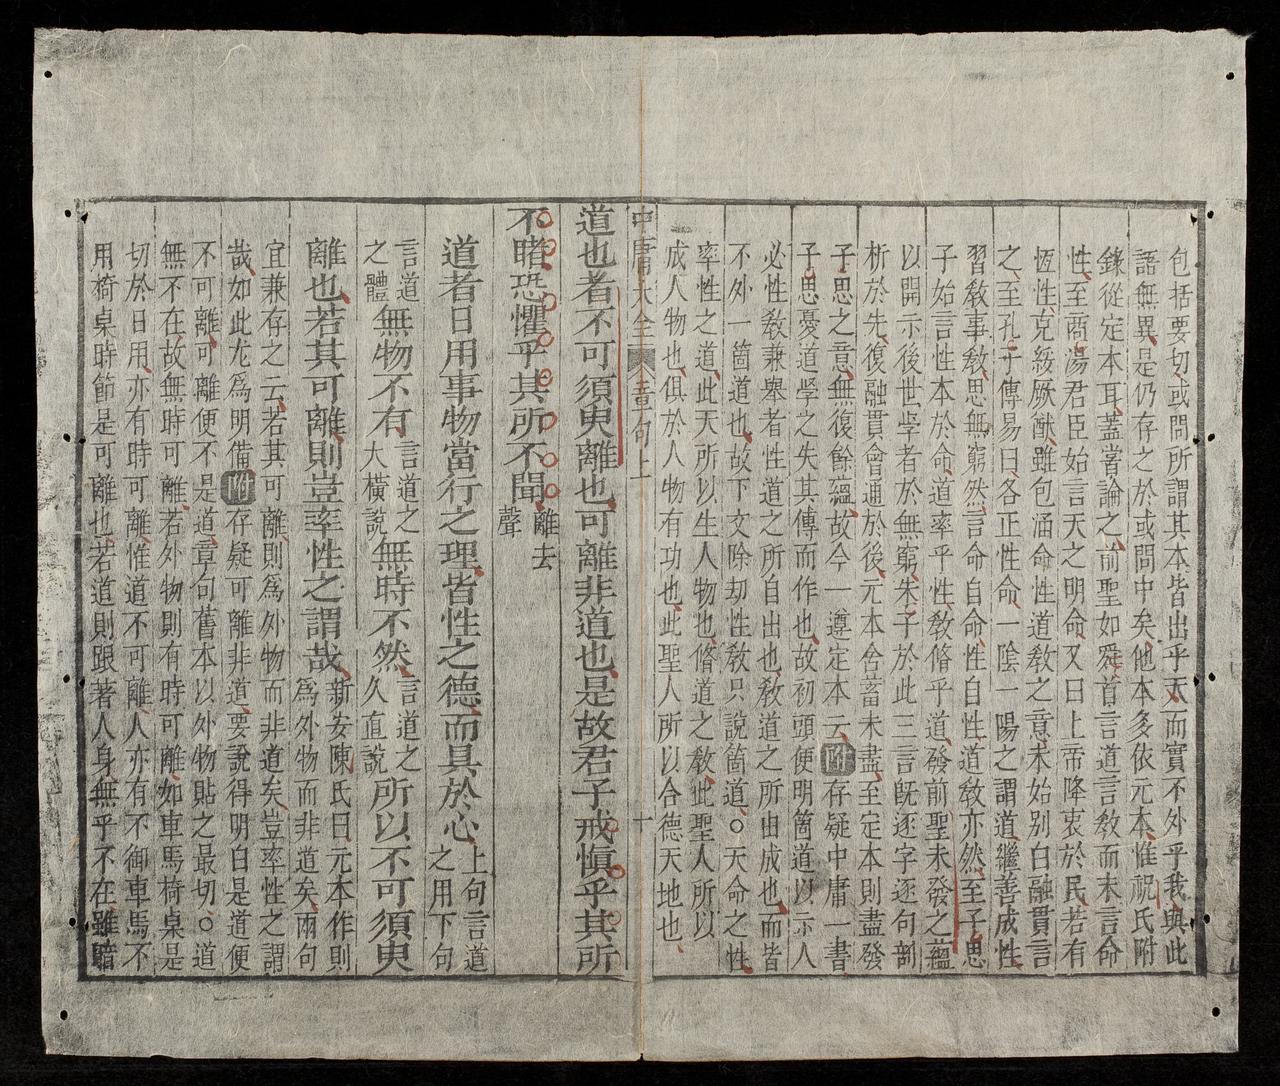 包括要切或問所謂其本皆出乎天而實不外乎我與此
語無異是仍存之於或問中矣他本多依元本惟祝氏附
錄從定本耳蓋嘗論之前聖如舜首言道言敎而未言命
性至商湯君臣始言天之明命又曰上帝降衷於民若有
恆性克綏厥猷雖包涵命性道敎之意未始別白融貫言
之至孔子傳易曰各正性命一陰一陽之謂道繼善成性
習敎事敎思無窮然言命自命性自性道敎亦然至子思
子始言性本於命道率乎性敎脩乎道發前聖未發之蘊
以開示後世學者於無窮朱子於此三言旣逐字逐句剖
析於先復融貫會通於後元本含蓄未盡至定本則盡發
子思之意無復餘蘊故今一遵定本云附存疑中庸一書
子思憂道學之失其傳而作也故初頭便明箇道以示人
必性敎兼舉者性道之所自出也敎道之所由成也而皆
不外一箇道也故下文除却性敎只說箇道○天命之性
率性之道此天所以生人物也脩道之敎此聖人所以
成人物也俱於人物有功也此聖人所以合德天地也
中庸大全 章句上 十
道也者不可須臾離也可離非道也是故君子戒愼乎其所
不睹恐懼乎其所不聞離去聲
道者日用事物當行之理皆性之德而具於心上句言道之用下句
言道之體無物不有言道之大橫說無時不然言道之久直說所以不可須臾
離也若其可離則豈率性之謂哉新安陳氏曰元本作則爲外物而非道矣兩句
宜兼存之云若其可離則爲外物而非道矣豈率性之謂
哉如此尤爲明備附存疑可離非道要說得明白是道便
不可離可離便不是道章句舊本以外物貼之最切○道
無不在故無時可離若外物則有時可離如車馬椅桌是
切於日用亦有時可離惟道不可離人亦有不御車馬不
用椅桌時節是可離也若道則跟著人身無乎不在雖暗